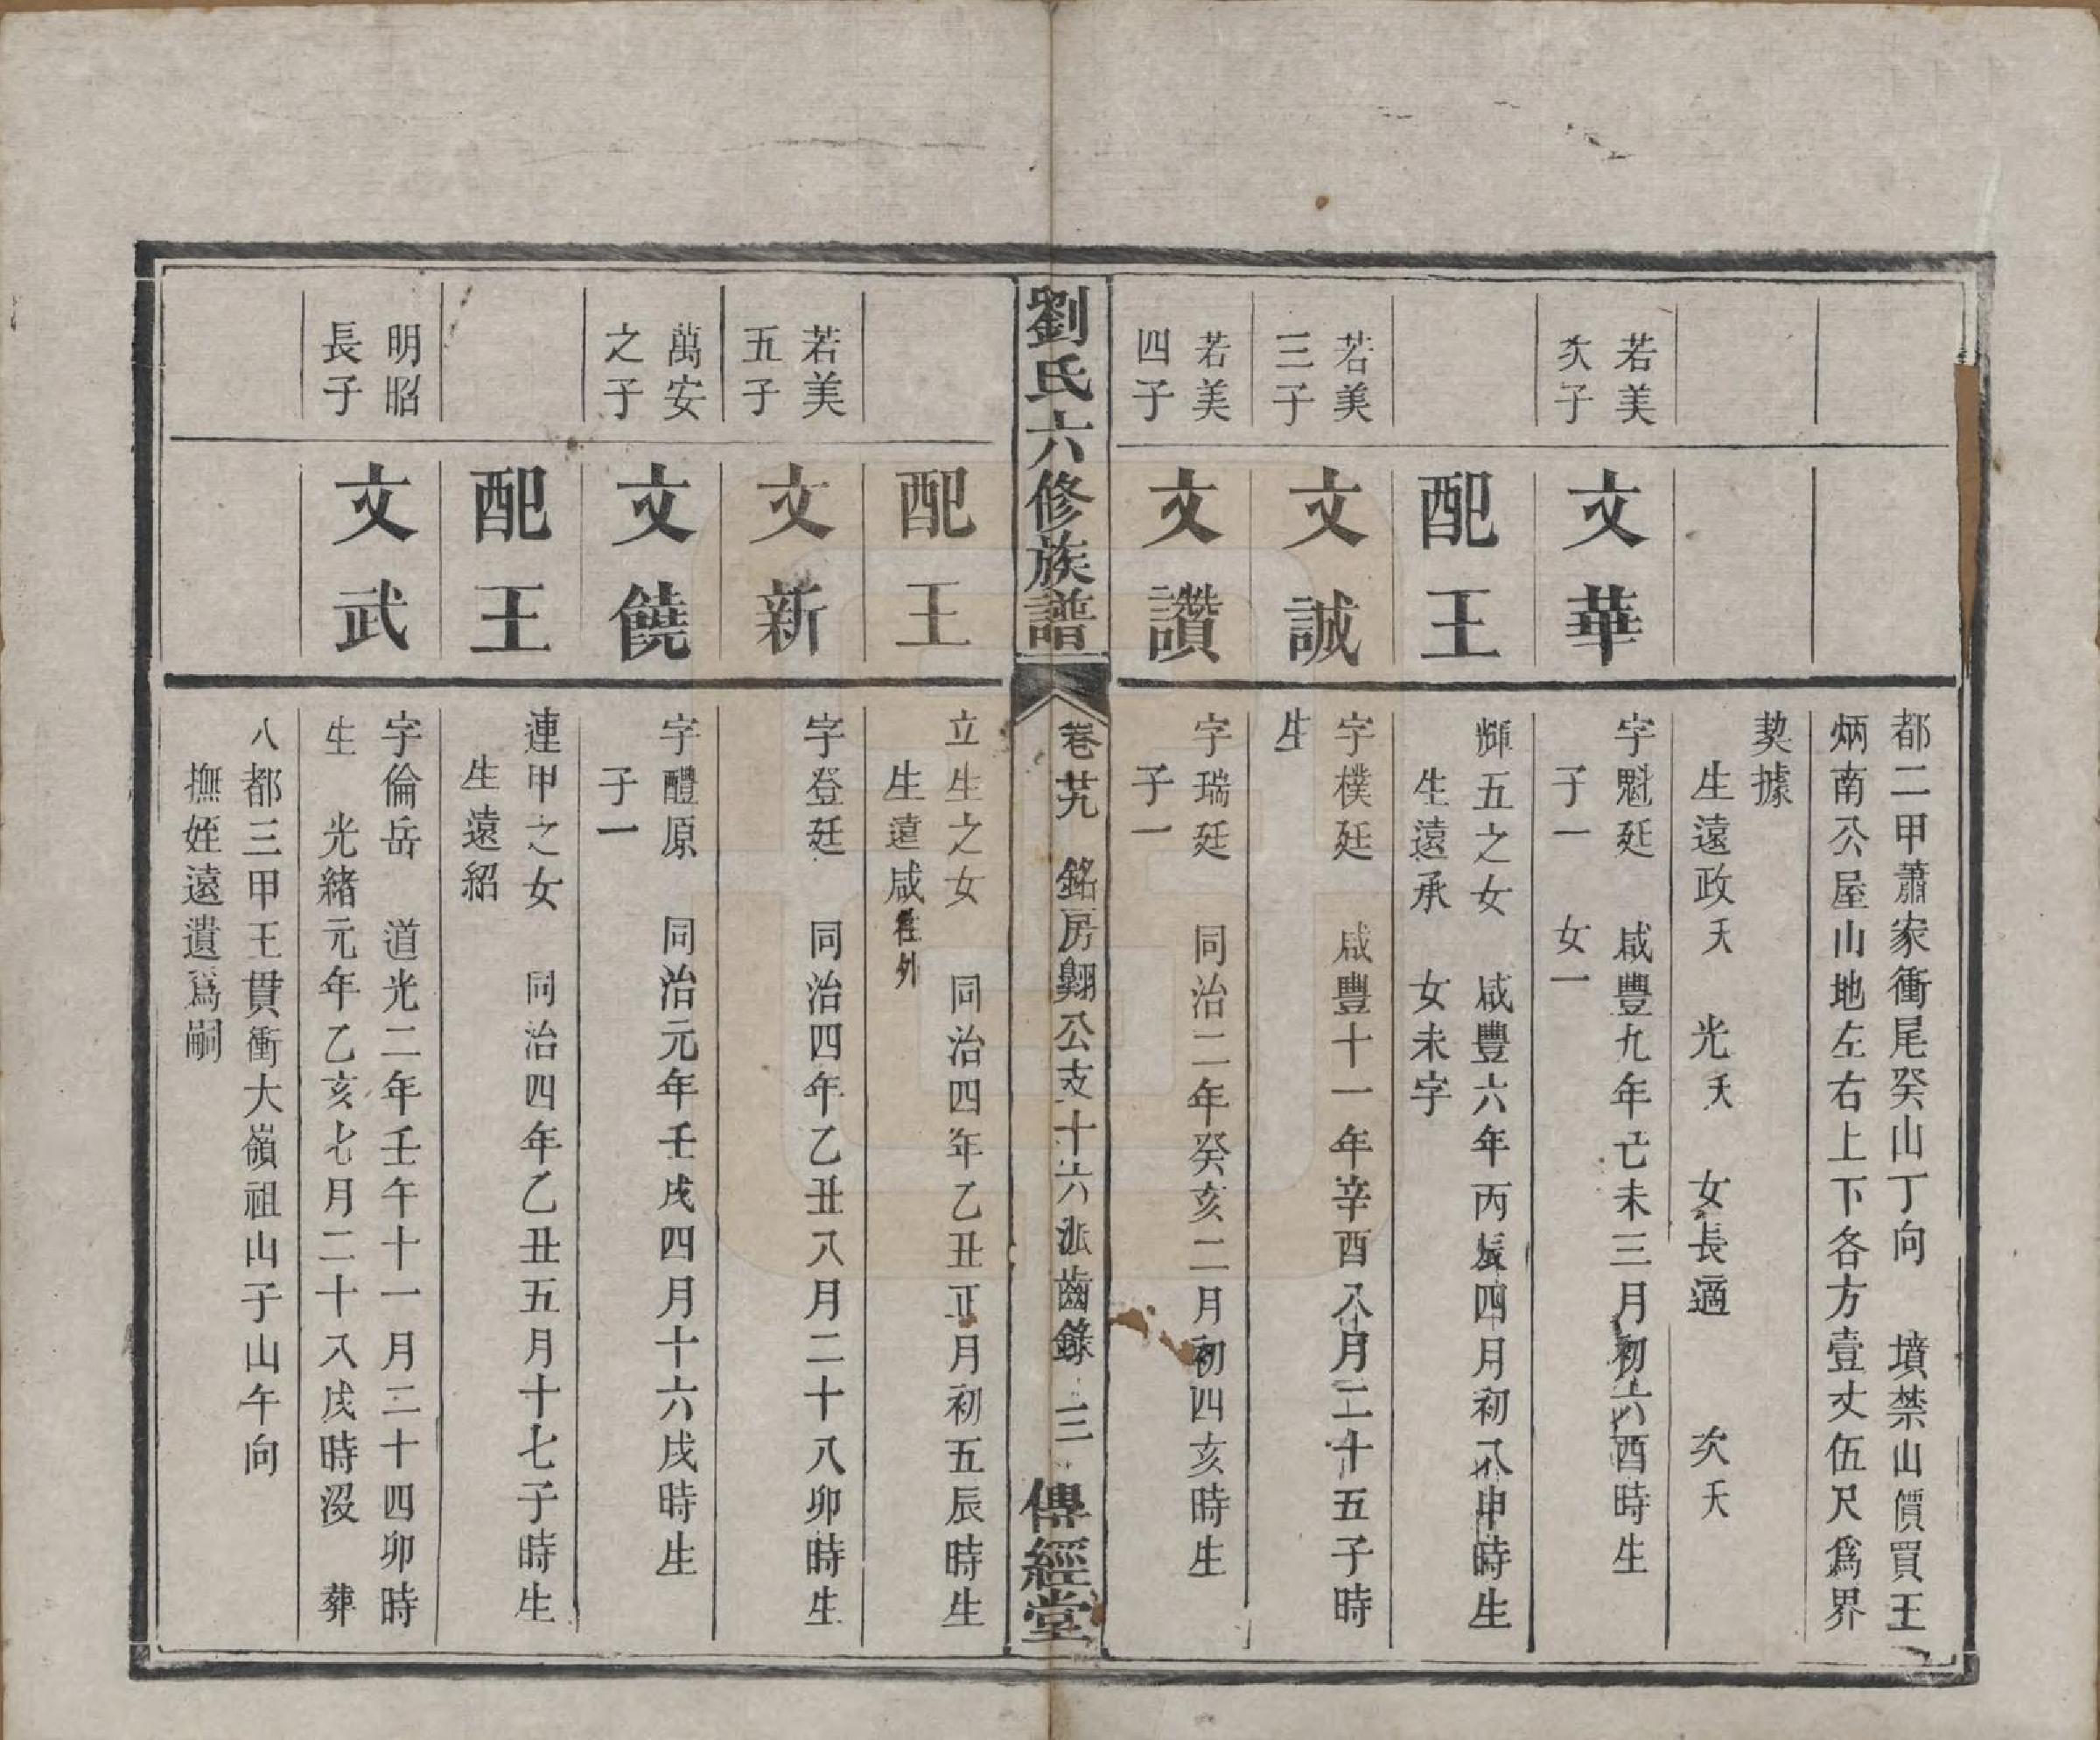 都二甲蕭家衝尾癸山丁向　墳禁山價買王
炳南公屋山地左右上下各方壹丈伍尺為界
契據
生遠政夭　光夭　女長適　　次夭
若美
次子
文華
字魁廷　咸豐九年己未三月初六酉時生
子一　女一
配王
輝五之女　咸豐六年丙辰四月初八申時生
生遠承　女未字
若美
三子
文誠
字樸廷　咸豐十一年辛酉八月二十五子時
生
若美
四子
文讚
字瑞廷　同治二年癸亥二月初四亥時生
子一
劉氏六修族譜
卷廿九　銘房翺公支十六派齒錄　三
傳經堂
配王
立生之女　同治四年乙丑正月初五辰時生
生遠咸往外
若美
五子
文新
字登廷　同治四年乙丑八月二十八卯時生
萬安
之子
文饒
字醴原　同治元年壬戌四月十六戌時生
子一
配王
連甲之女　同治四年乙丑五月十七子時生
生遠紹
明昭
長子
文武
字倫岳　道光二年壬午十一月二十四卯時
生　光緒元年乙亥七月二十八戌時沒　葬
八都三甲王貫衝大嶺祖山子山午向
撫姪遠遺為嗣